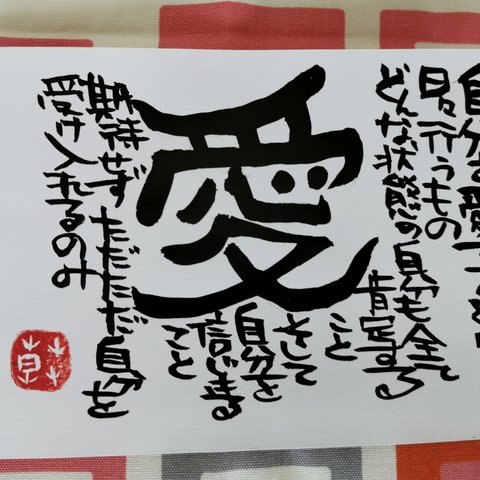 愛
自分を愛する
日々行うもの
どんな状態の自分も全て
肯定する
こと
そして
自分を
信じきる
こと
期待せず ただただ自分を
受け入れるのみ